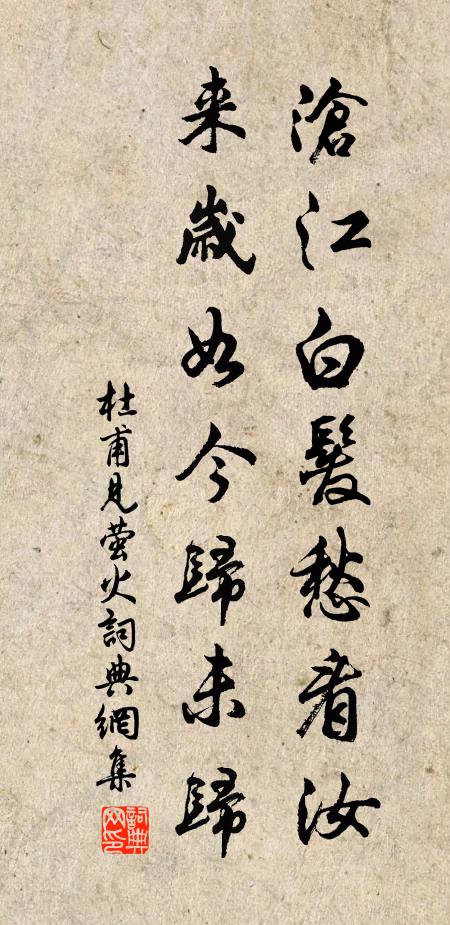 滄江白髮愁看汝
來歲如今歸未歸
杜甫見螢火詞典網集
詞典網印